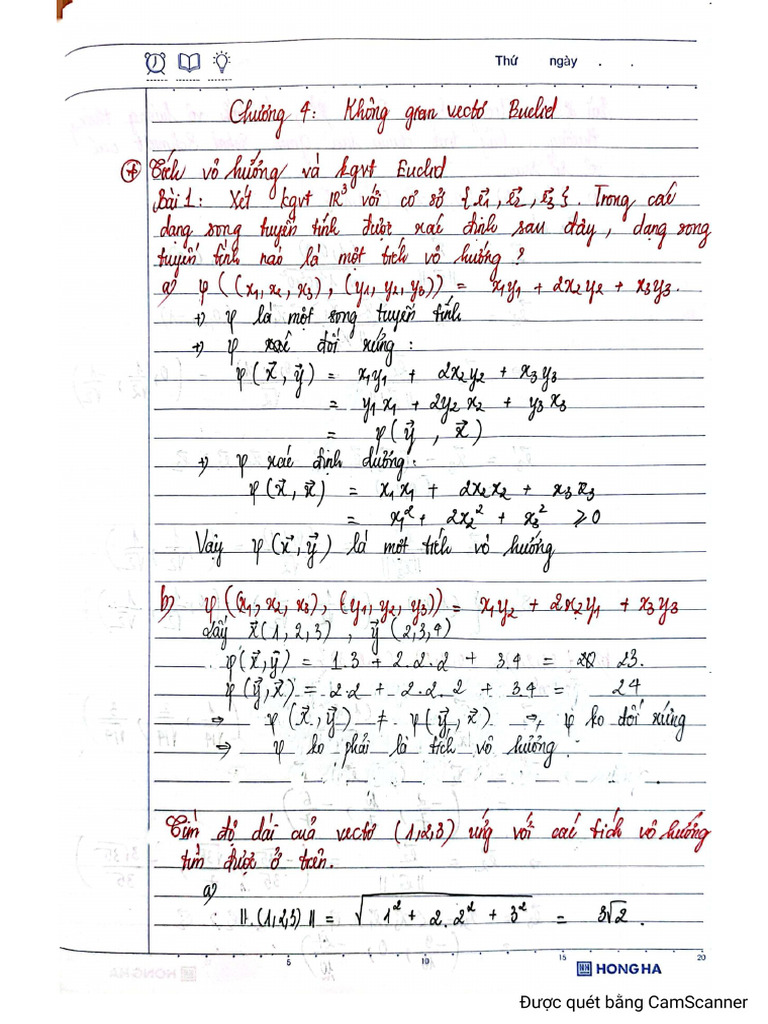 Thứ ngày . .
Chương 4: Không gian vectơ Euclid
* Tích vô hướng và kgvt Euclid
Bài 1: Xét kgvt IR³ với cơ sở {e⃗1, e⃗2, e⃗3}. Trong các
dạng song tuyến tính được xác định sau đây, dạng song
tuyến tính nào là một tích vô hướng?
a) φ((x1, x2, x3), (y1, y2, y3)) = x1y1 + 2x2y2 + x3y3.
+) φ là một song tuyến tính
+) φ đối xứng:
φ(x⃗, y⃗) = x1y1 + 2x2y2 + x3y3
= y1x1 + 2y2x2 + y3x3
= φ(y⃗, x⃗)
+) φ xác định dương:
φ(x⃗, x⃗) = x1x1 + 2x2x2 + x3x3
= x1² + 2x2² + x3² ≥ 0
Vậy φ(x⃗, y⃗) là một tích vô hướng
b) φ((x1, x2, x3), (y1, y2, y3)) = x1y2 + 2x2y1 + x3y3
Lấy x⃗(1, 2, 3), y⃗(2,3,4)
φ(x⃗, y⃗) = 1.3 + 2.2.2 + 3.4 = 23.
φ(y⃗, x⃗) = 2.2 + 2.2.2 + 3.4 = 24
⇒ φ(x⃗, y⃗) ≠ φ(y⃗, x⃗) ⇒ φ ko đối xứng
⇒ φ ko phải là tích vô hướng.
Tìm độ dài của vectơ (1,2,3) ứng với các tích vô hướng
tìm được ở trên.
a)
||(1,2,3)|| = √(1² + 2.2² + 3²) = 3√2.
5 10 15 20
HONG HA
Được quét bằng CamScanner